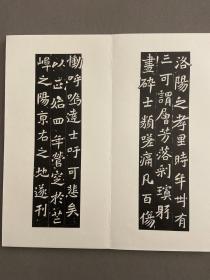 洛陽之孝里時年卅有
三可謂層芳落璸
盡碎士類嗟痛凡百傷
慟呼嗚遠士吁可悲矣
以正始四年營於芒
之陽京右之地遂刊